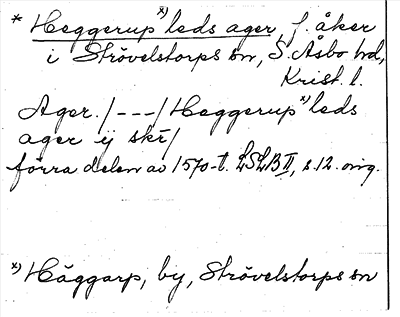 * Heggerup x) leds ager, f. åker
i Strövelstorps sn, S. Åsbo hd,
Krist. l.
Ager. /---/ Heggerup x) leds
ager ij skr/
förra delen av 1570-t. LSLB II, s. 12. orig.
x) Häggarp, by, Strövelstorps sn